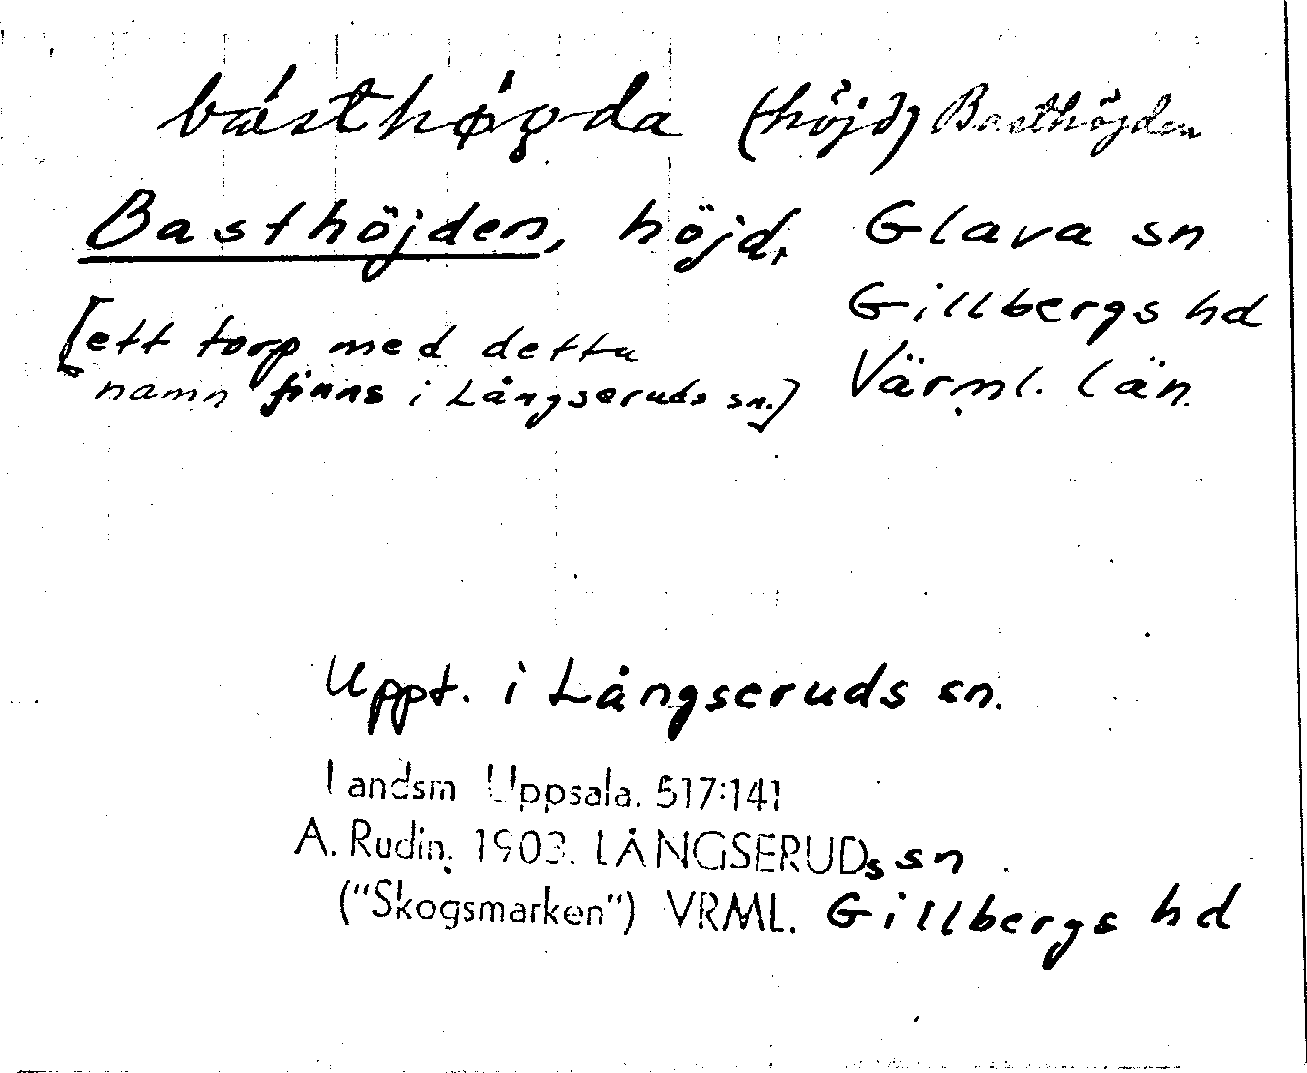 básthǿgda (höjd) Basthöjden
Basthöjden, höjd, Glava sn
Gillbergs hd
[ett torp med detta
namn finns i Långseruds sn.] Värml. län.
Uppt. i Långseruds sn.
Landsm Uppsala. 517:141
A. Rudin. 1903. LÅNGSERUDs sn
("Skogsmarken") VRML. Gillbergs hd